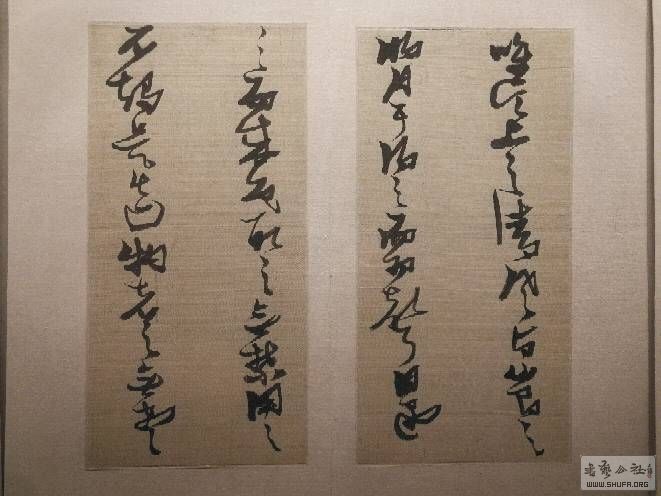 惟江上之清風与山間之
明月耳得之而為聲目遇
之而成色取之無禁用之
不竭是造物者之無盡
書藝公社
WWW.SHUFA.ORG